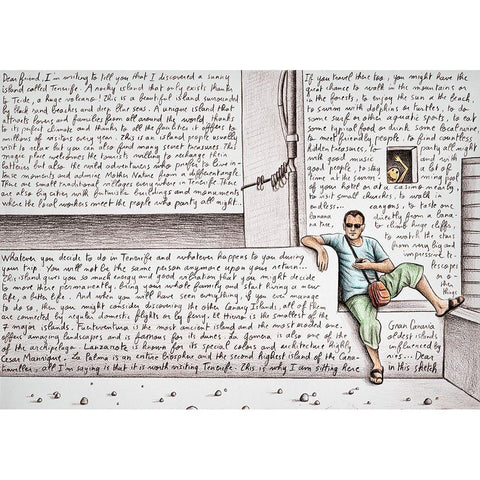 Dear friend, I'm writing to tell you that I discovered a sunny
island called Tenerife. A rocky island that only exists thanks
to Teide, a huge volcano! This is a beautiful island surrounded
by black sand beaches and deep blue seas. A unique island that
attracts lovers and families from all around the world, thanks
to its perfect climate and thanks to all the facilities it offers to
millions of visitors every year. This is an island people usually
visit to relax but you can also find many secret treasures. This
magic place welcomes the tourists willing to recharge their
batteries but also the wild adventurers who prefer to live in
tense moments and admire Mother Nature from a different angle.
There are small traditional villages everywhere in Tenerife. There
are also big cities with futuristic buildings and monuments
where the local workers meet the people who party all night...
If you travel there too, you might have the
great chance to walk in the mountains or
in the forests, to enjoy the sun at the beach,
to swim with dolphins or turtles, to do
some surf or other aquatic sports, to eat
some typical food or drink some local wine,
to meet friendly people, to find countless
hidden treasures, to party all night
with good music and with
good people, to stay a lot of
time at the swimm- ming pool
of your hotel or at a casino nearby
to visit small churches, to walk in
endless... canyons, to taste one
banana directly from a bana-
na tree, to climb huge cliffs
or to watch the stars
from very big and
impressive te-
lescopes
or o-
ther
things
Whatever you decide to do in Tenerife and whatever happens to you during
your trip. You will not be the same person anymore upon your return...
This island gives you so much energy and good vibration that you might decide
to move there permanently, bring your whole family and start living a new
life, a better life. And when you will have seen everything, if you ever manage
to do so, then you might consider discovering the other Canary Islands, all of them
are connected by regular domestic flights or by ferry. El Hierro is the smallest of the
7 major islands. Fuerteventura is the most ancient island and the most eroded one.
offers amazing landscapes and is famous for its dunes. La Gomera is also one of the
of the archipelago. Lanzarote is known for its special colors and architecture highly
Cesar Manrique. La Palma is an entire biosphere and the second highest island of the Cana-
familles, all I'm saying is that it is worth visiting Tenerife. This is why I am sitting here
Gran Canaria
oldest islands
influenced by
ries... Dear
in this sketch